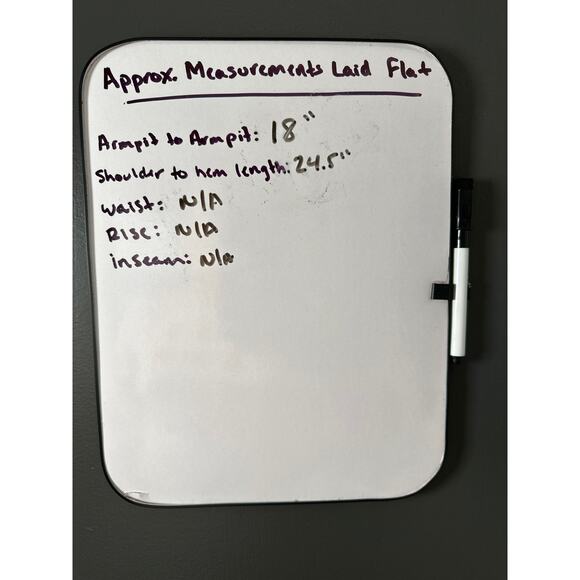 Approx. Measurements Laid Flat
Armpit to Armpit: 18"
Shoulder to hem length: 24.5"
waist: N/A
Rise: N/A
inseam: N/A